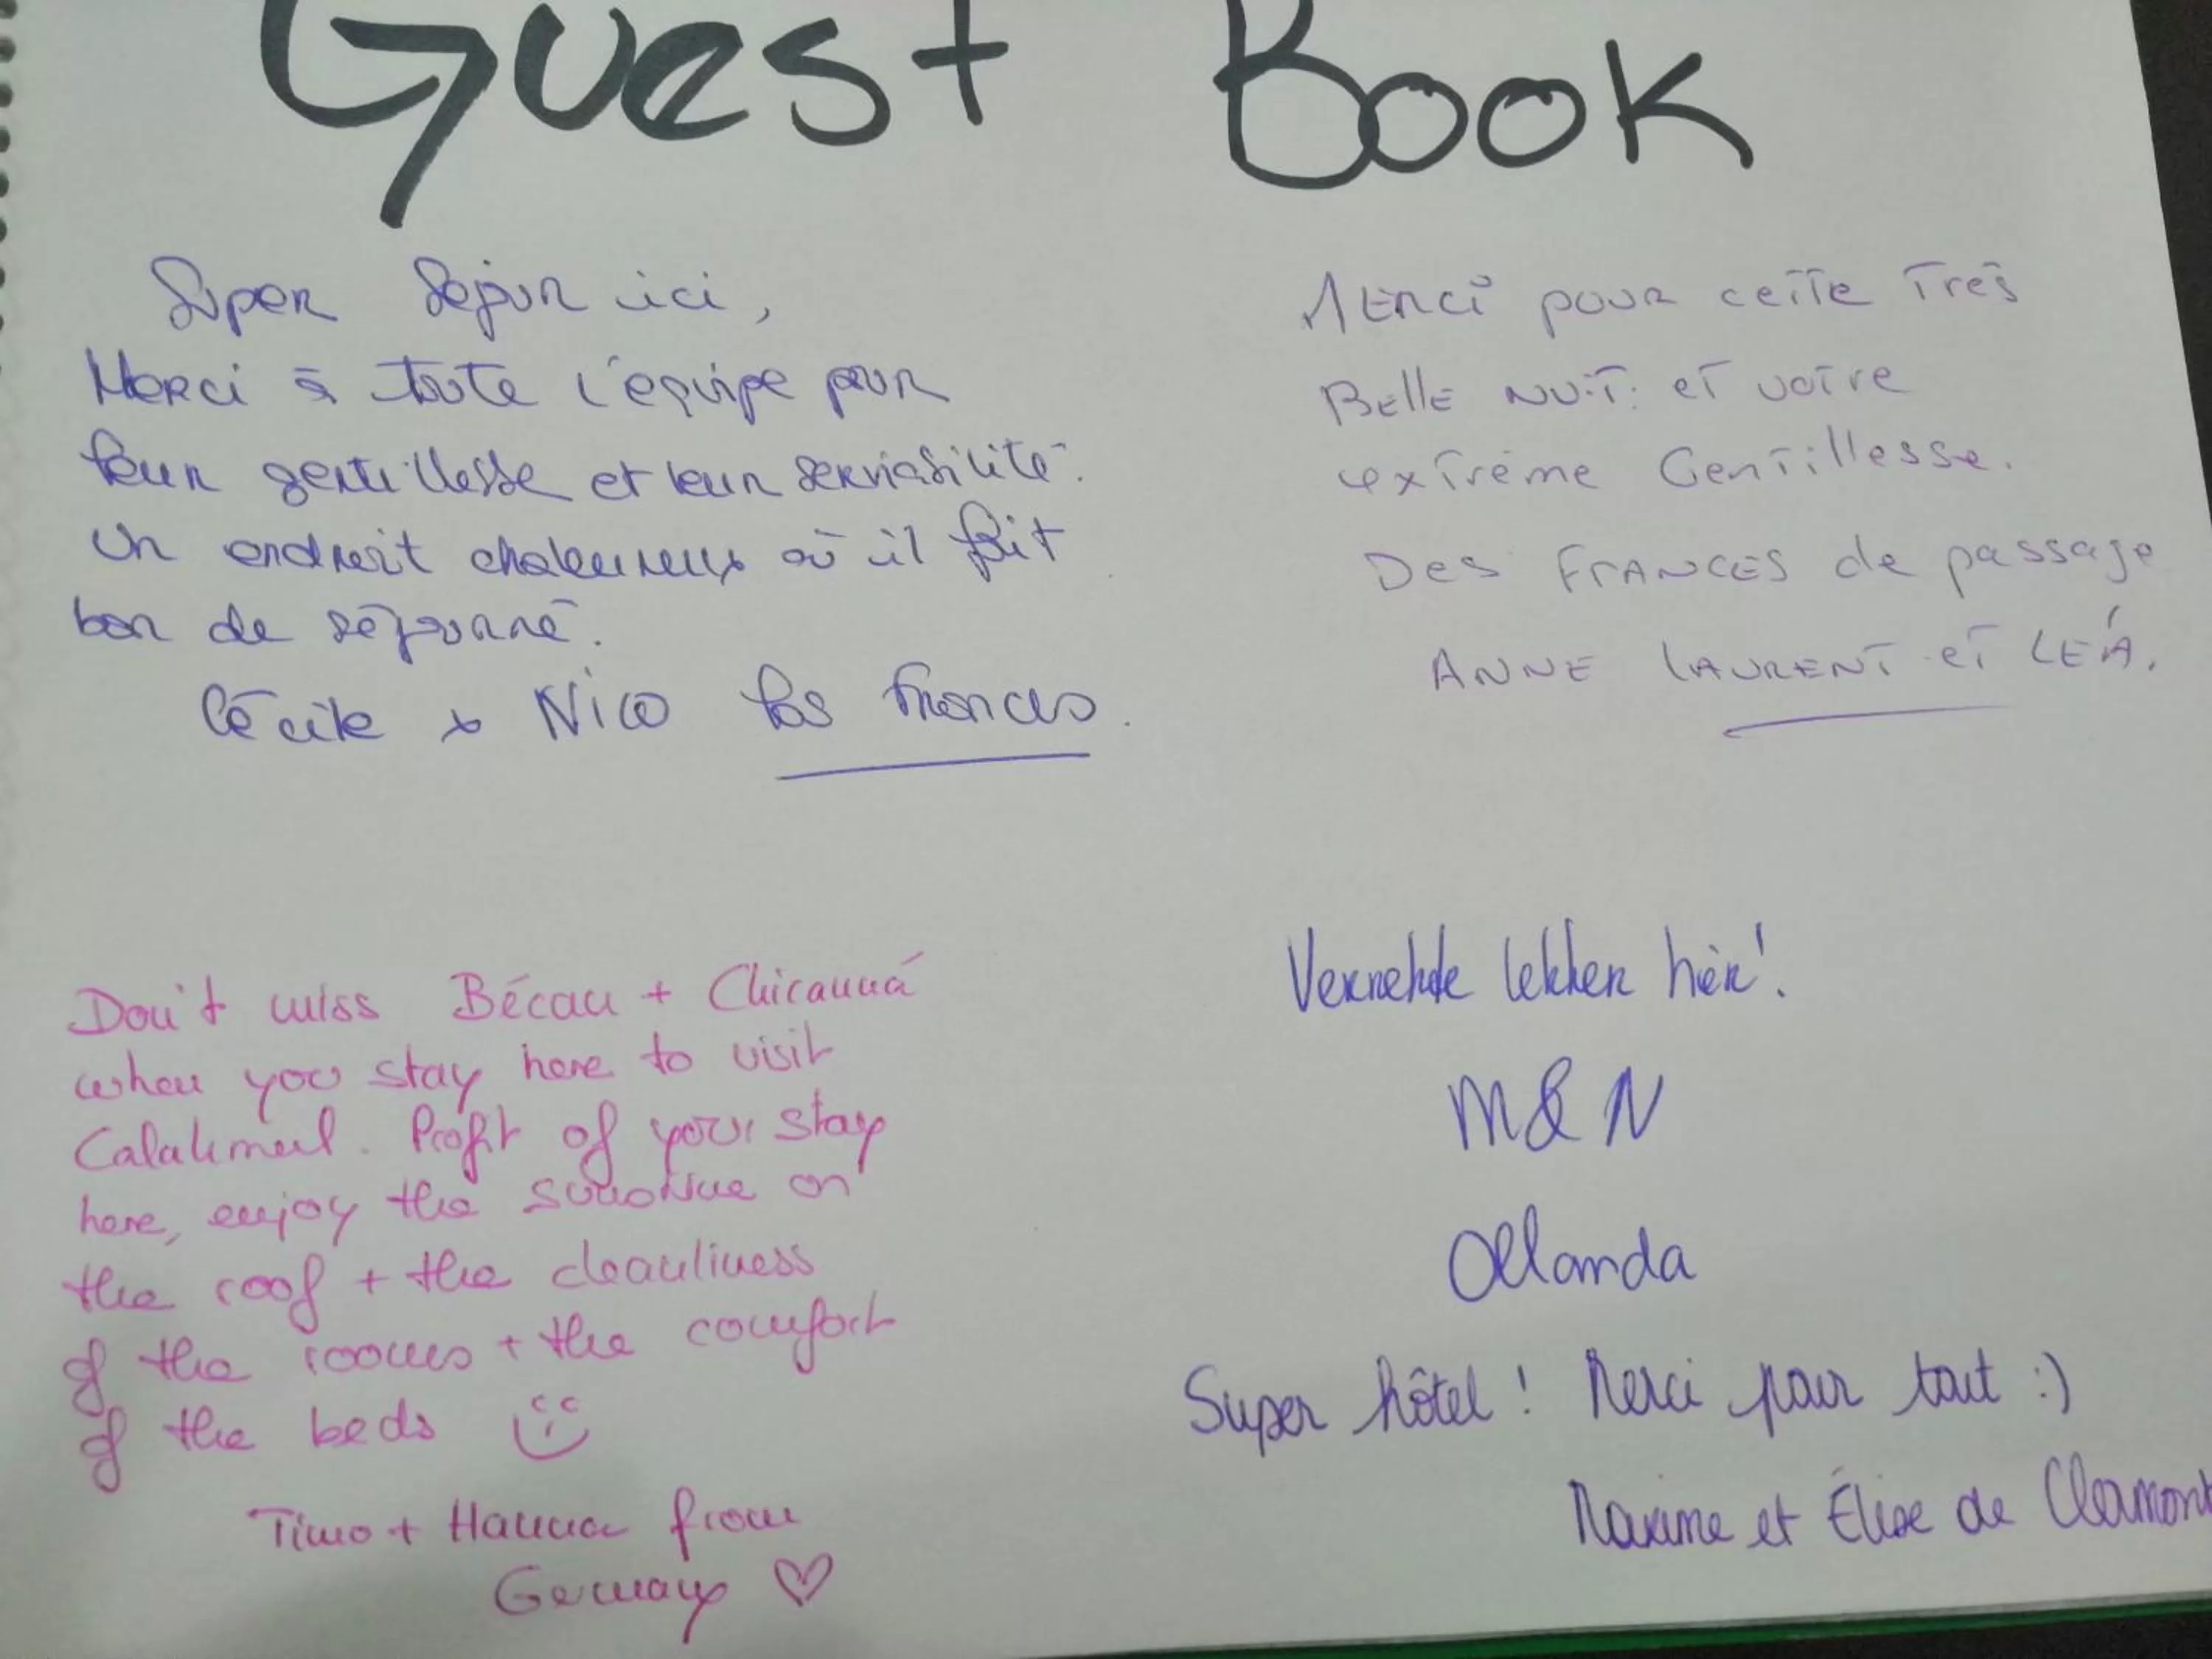 Guest Book
Super séjour ici,
Merci à toute l'équipe pour
leur gentillesse et leur serviabilité.
Un endroit chaleureux où il fait
bon de séjourné.
Cécile & Nico Los Frances.
Merci pour cette Très
Belle NUIT et votre
extrême Gentillesse.
Des FRANCES de passage
ANNE LAURENT et LÉA.
Don't miss Bécan + Chicanná
when you stay here to visit
Calakmul. Profit of your stay
here, enjoy the sunshine on
the roof + the cleanliness
of the rooms + the comfort
of the beds
Timo + Hanna from
Germany ♡
lekker hier!
M & N
Ollanda
Super hôtel ! Merci pour tout :)
Maxime et Élise de Clermont